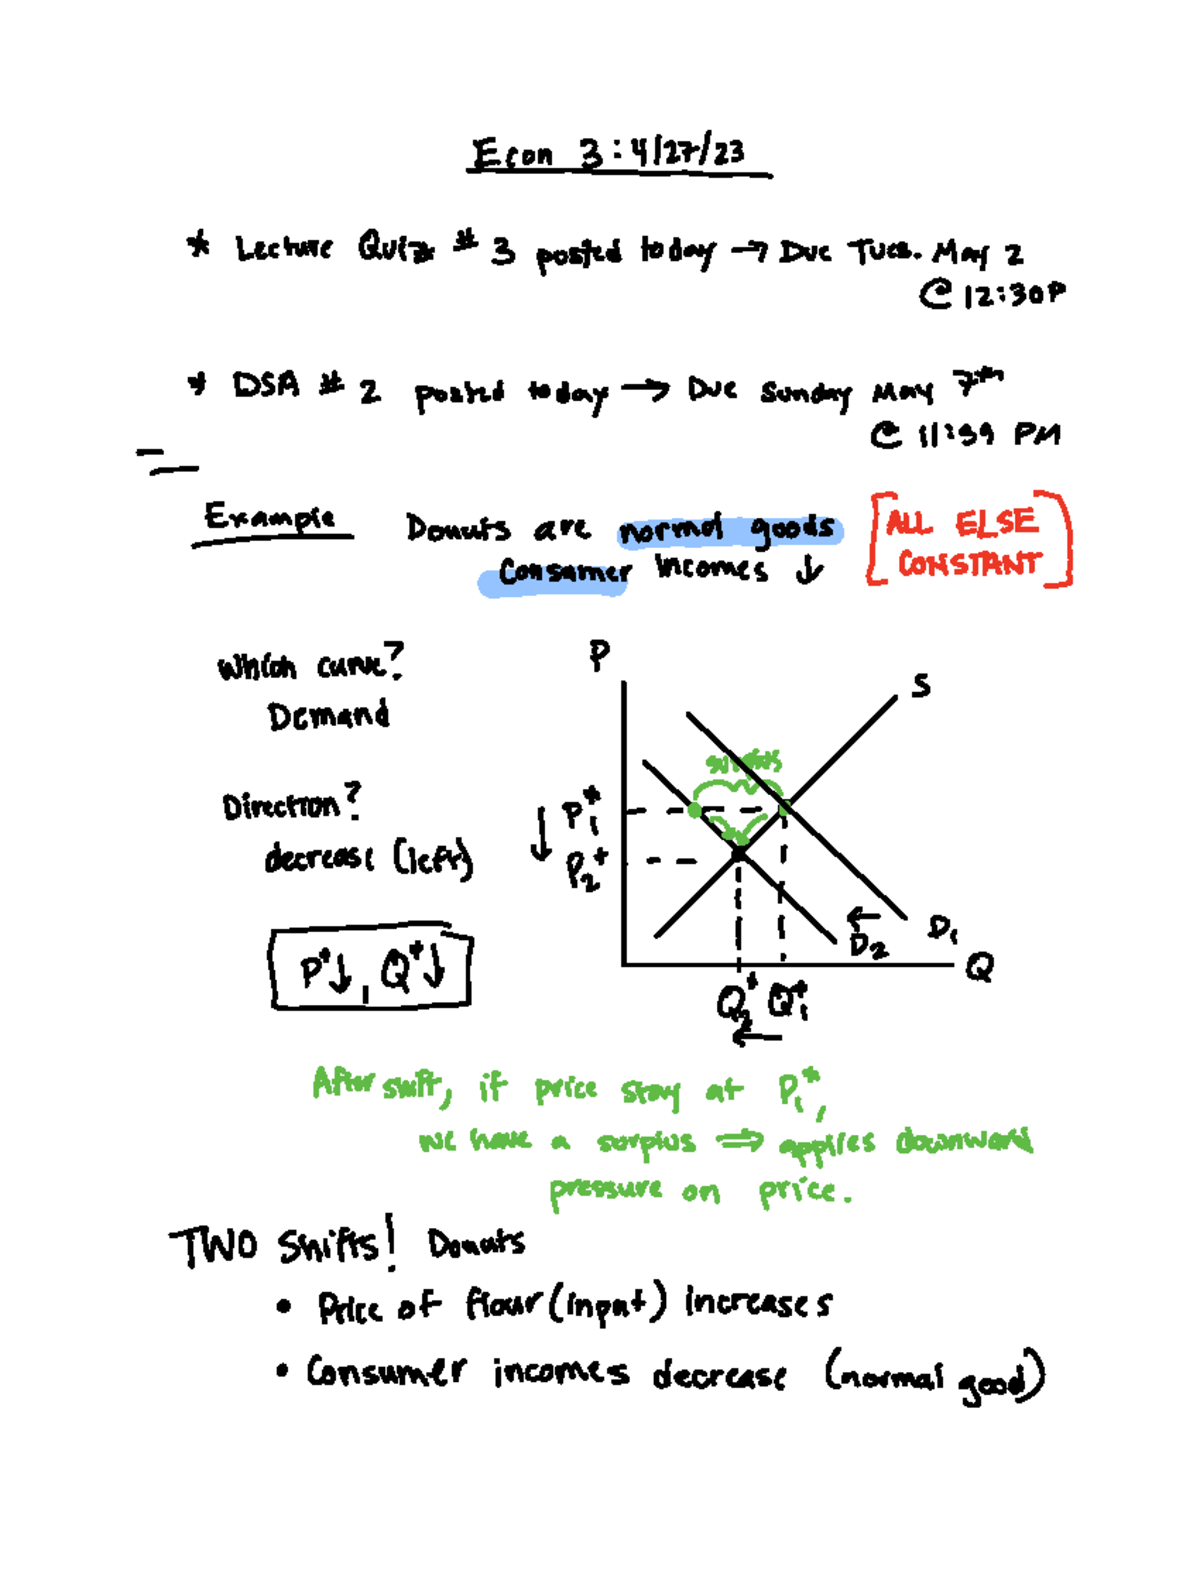 Econ 3 : 4/27/23
* Lecture Quiz # 3 posted today → Due Tues. May 2
@ 12:30P
* DSA # 2 posted today → Due Sunday May 7th
@ 11:59 PM
Example Donuts are normal goods [ALL ELSE
Consumer Incomes ↓ CONSTANT]
Which curve?
Demand
Direction?
decrease (left)
P*↓, Q*↓
P
S
surplus
↓ P1*
P2*
← D1
D2
Q
Q2* Q1*
←
After shift, if price stay at P1*,
we have a surplus ⇒ applies downward
pressure on price.
TWO Shifts! Donuts
• Price of flour (input) increases
• Consumer incomes decrease (normal good)